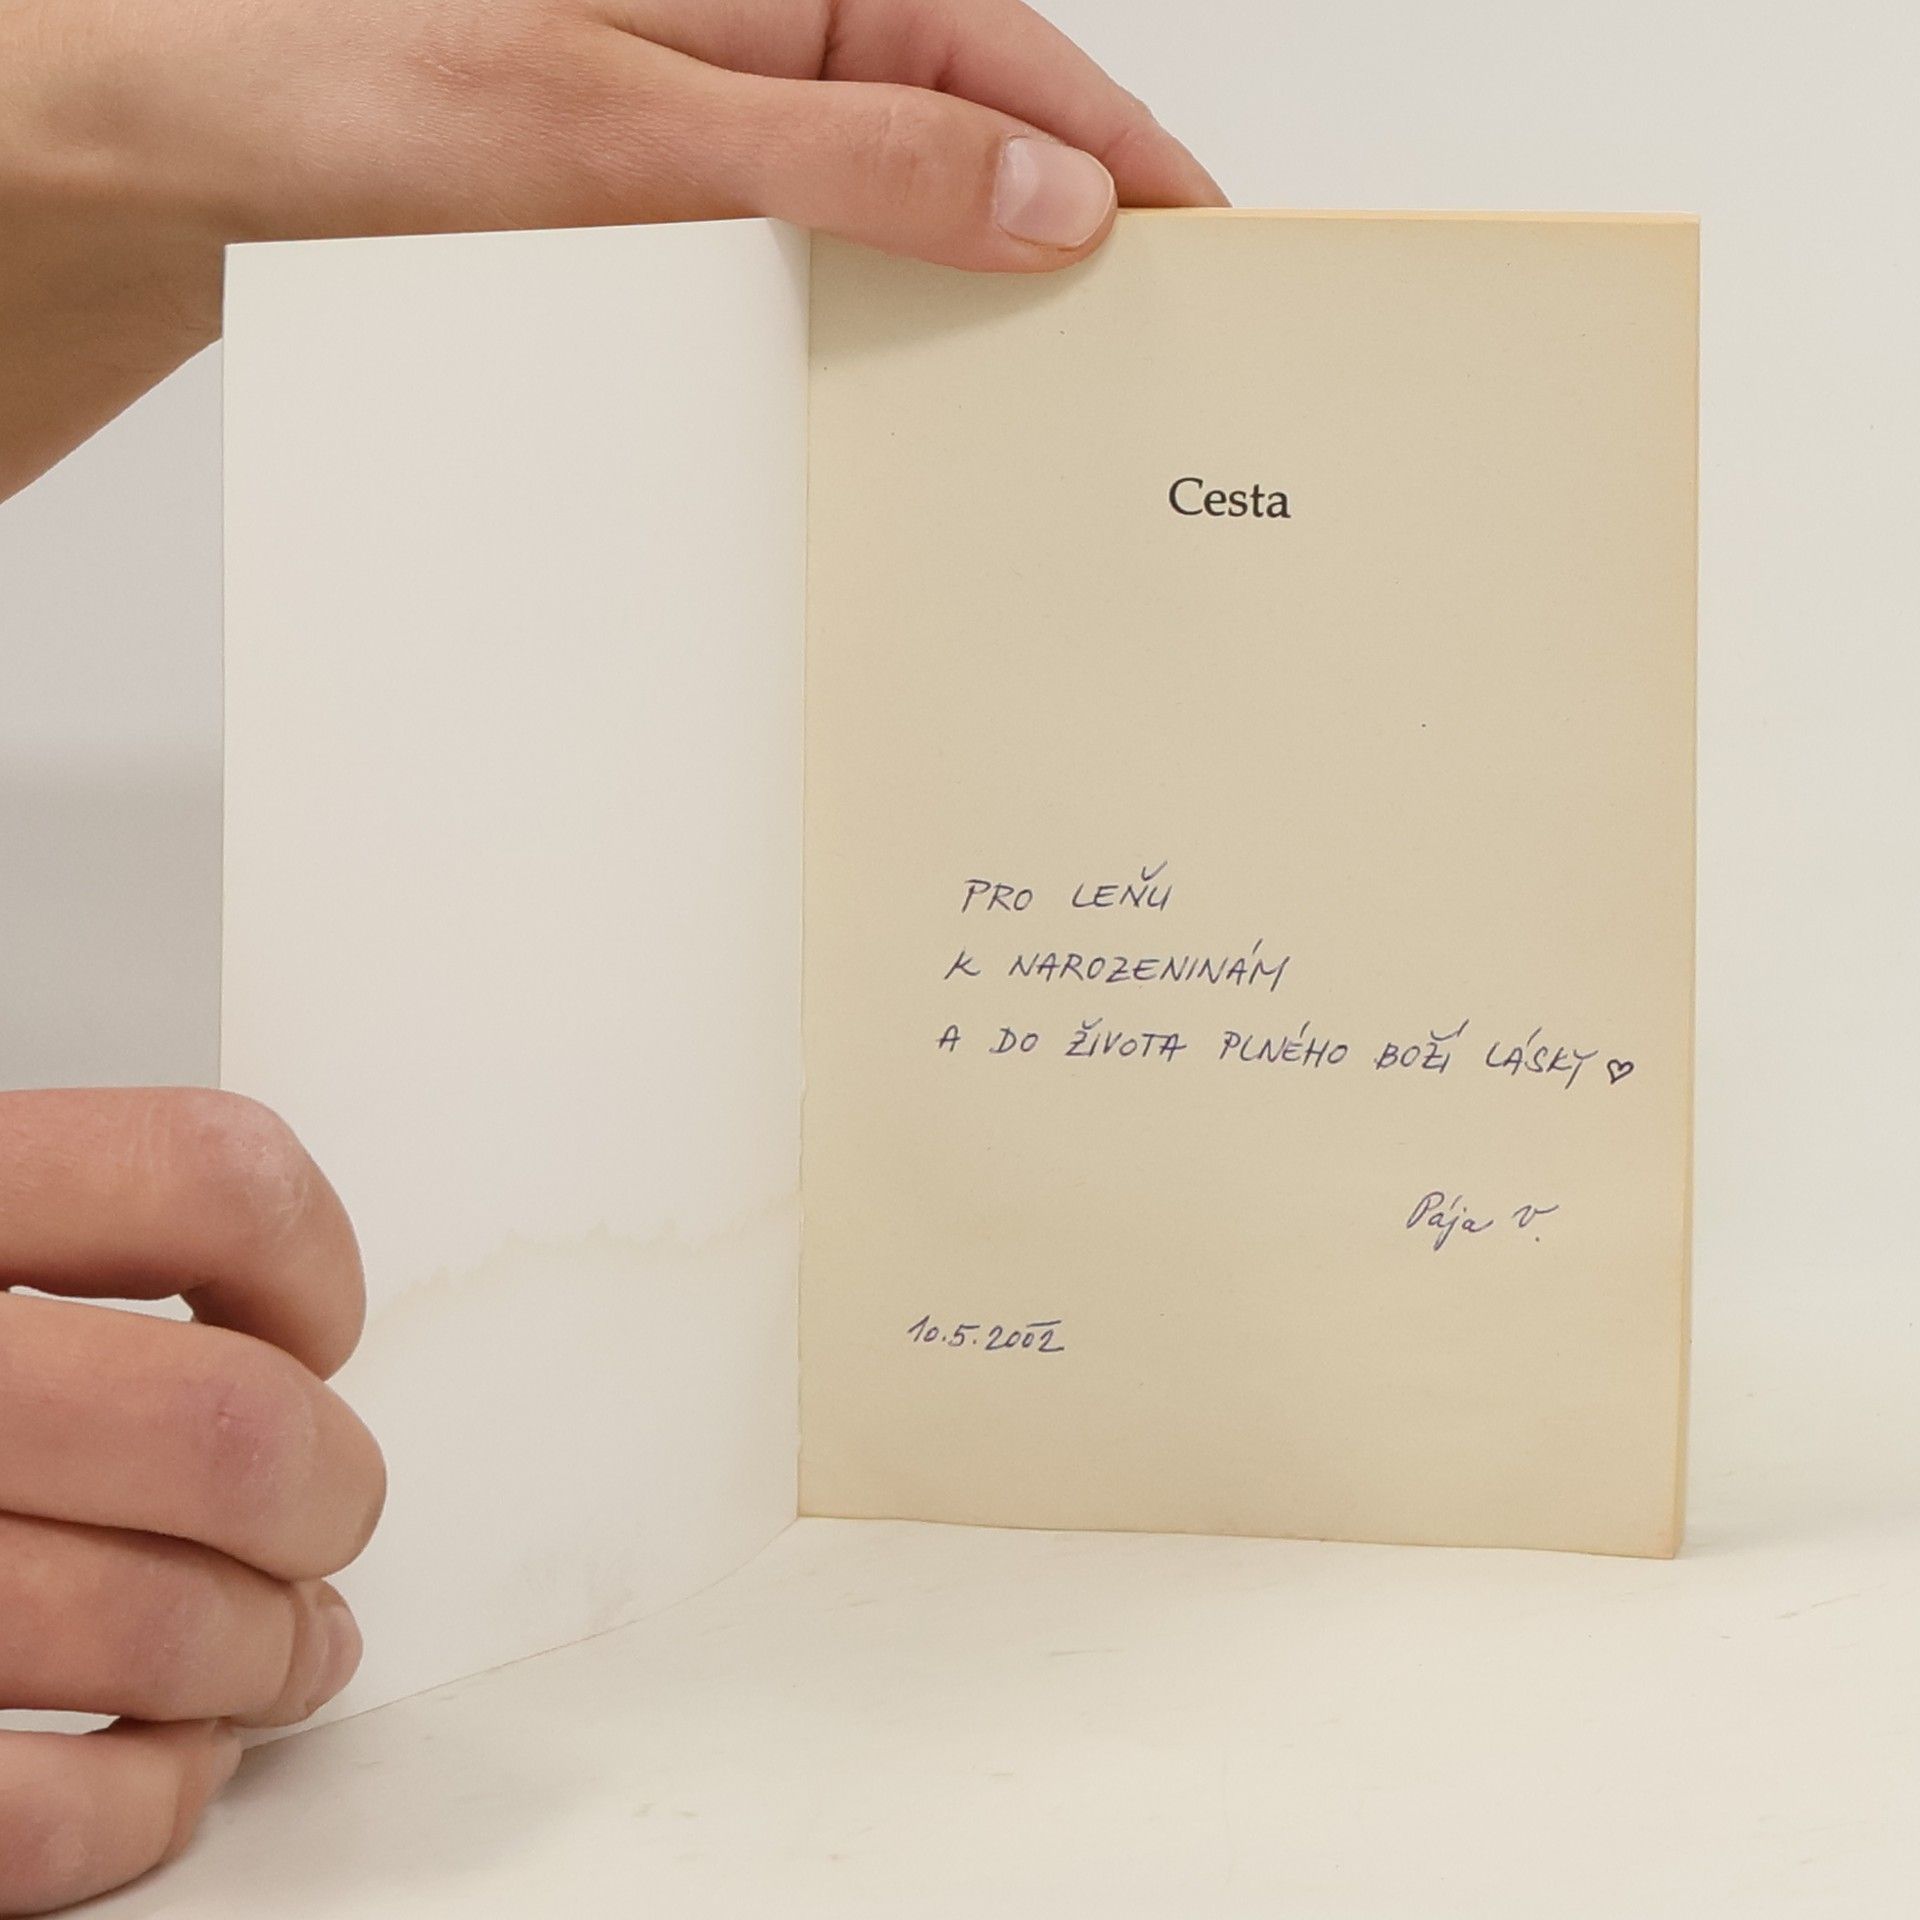 Cesta
PRO LEŇU
K NAROZENINÁM
A DO ŽIVOTA PLNÉHO BOŽÍ LÁSKY ♥
Pája V.
10.5.2002